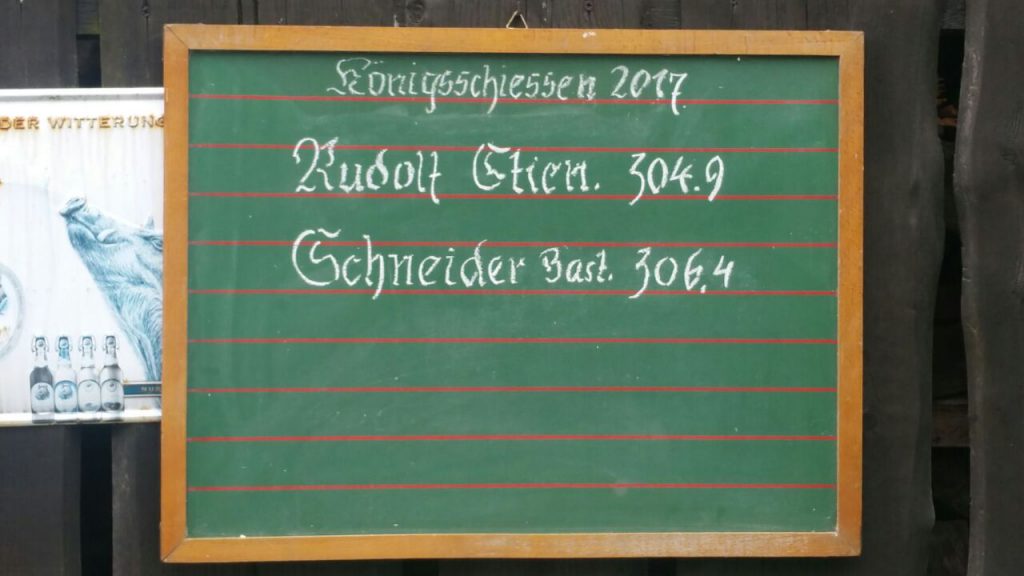 Königsschiessen 2017
DER WITTERUNG
Rudolf Etien. 304.9
Schneider Bast. 306.4